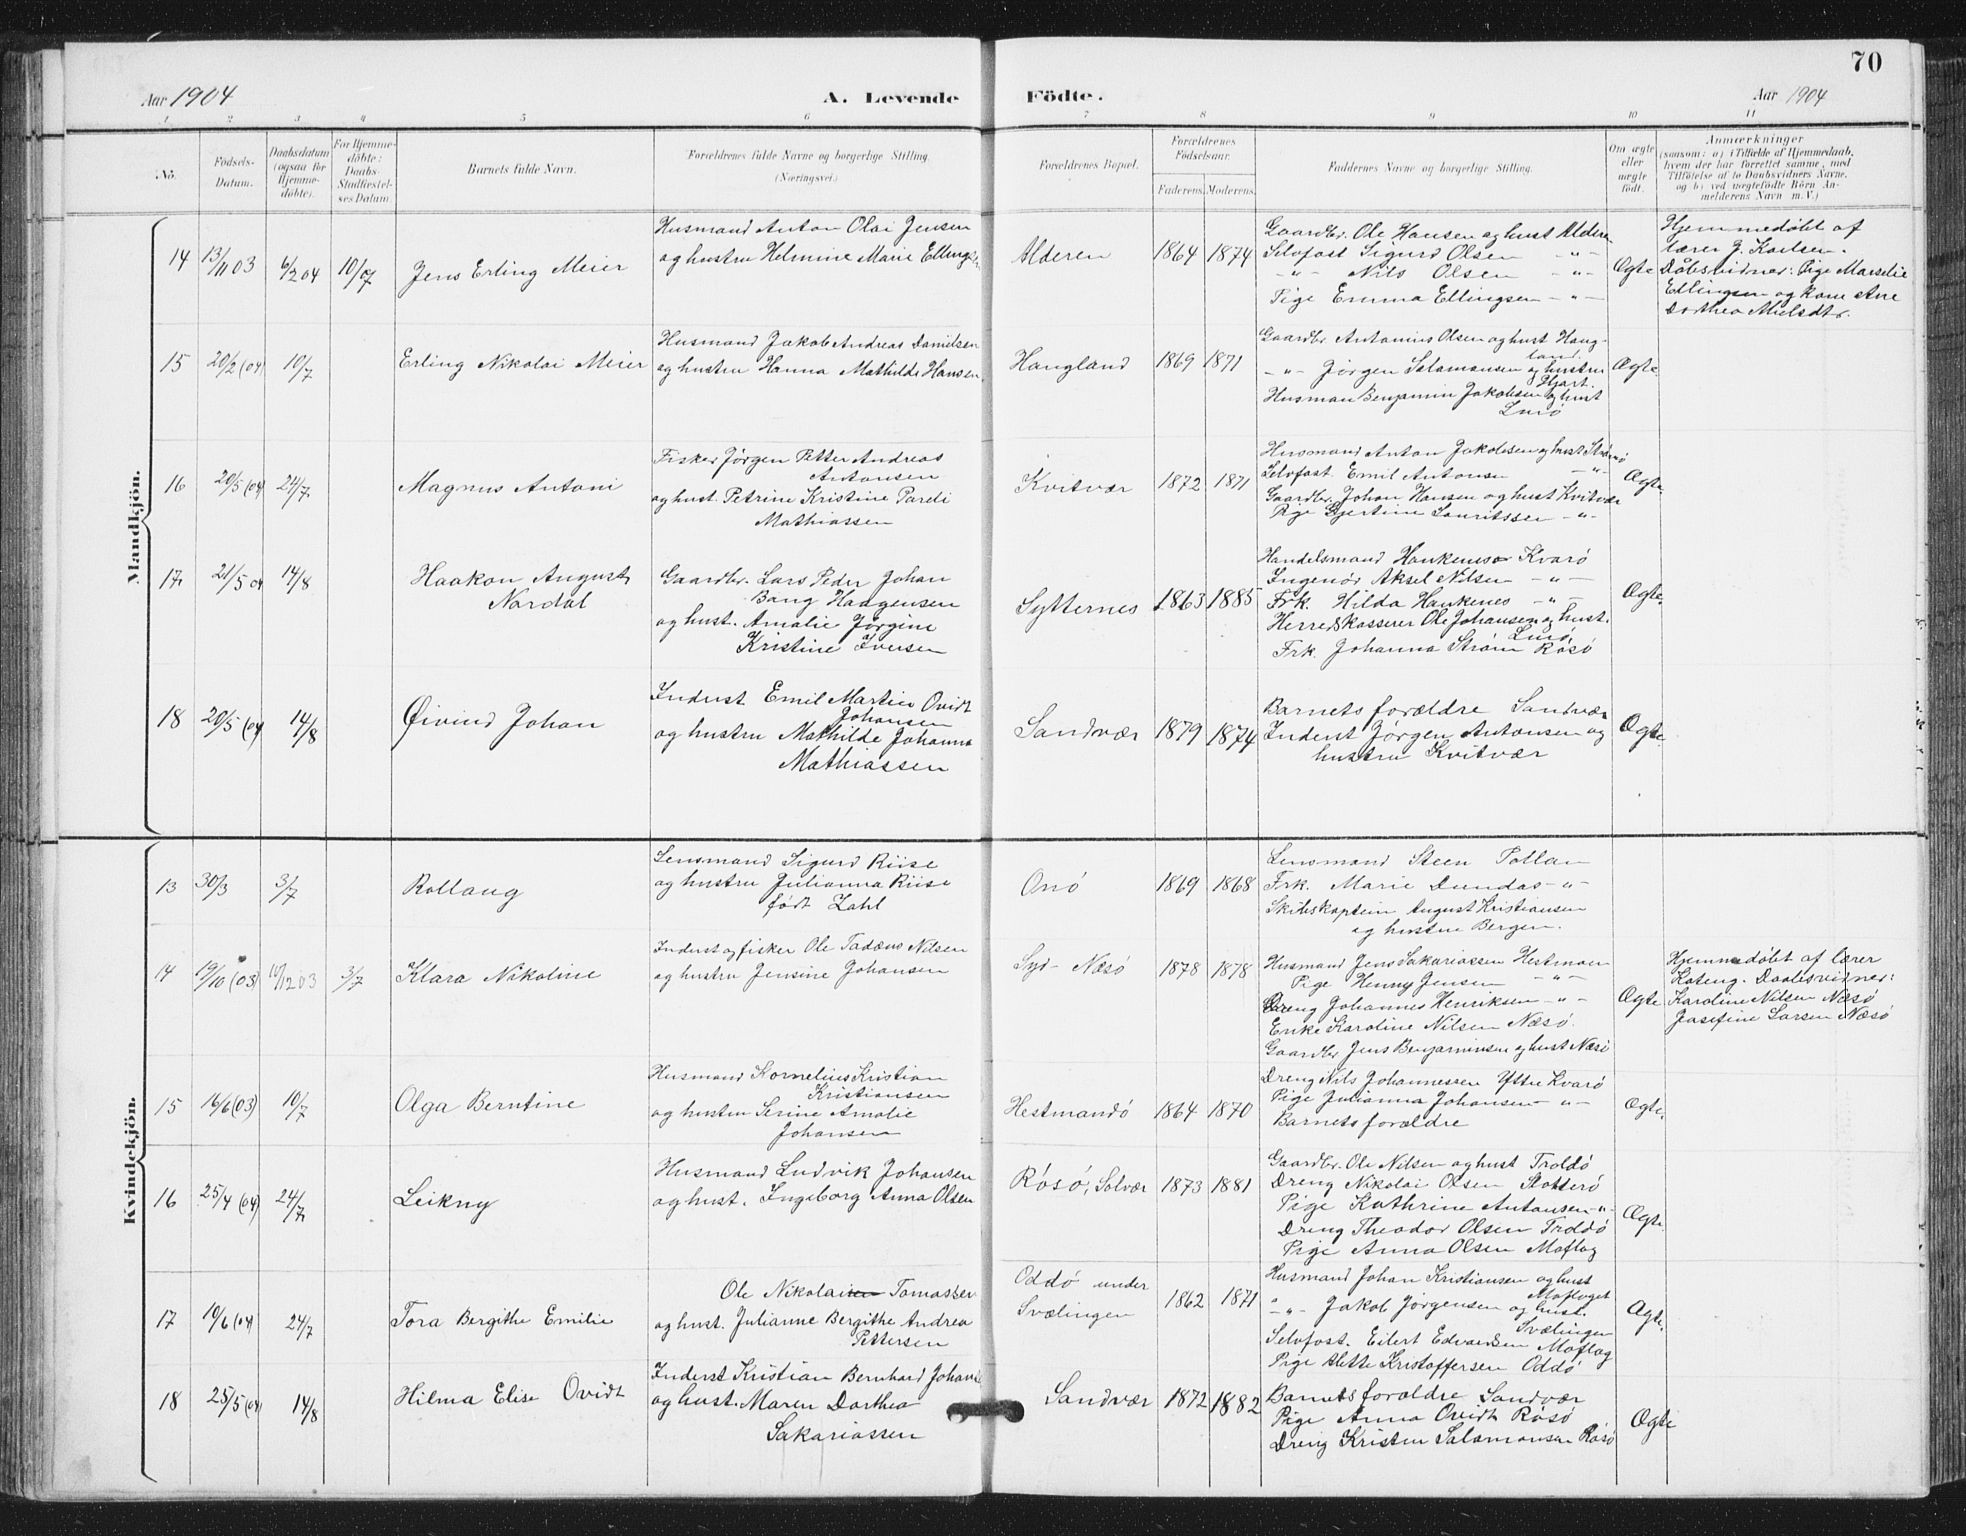 70
Aar 1904 A. Levende Födte. Aar 1904
1 2 3 4 5 6 7 8 9 10 11
No.
Födsels-
Datum.
Daabsdatum
(ogsaa for
Hjemme-
döbte).
For Hjemme-
döbte:
Daabs-
Stadfæstel-
ses Datum
Barnets fulde Navn.
Forældrenes fulde Navne og borgerlige Stilling.
(Næringsvei.)
Forældrenes Bopæl.
Forældrenes
Födselsaar.
Faderens. Moderens.
Faddernes Navne og borgerlige Stilling.
Om ægte
eller
uægte
födt.
Anmærkninger
(saasom: a) i Tilfælde af Hjemmedaab,
hvem der har forrettet samme, med
Tilföielse af to Daabsvidners Navne,
og b) ved uægtefödte Börn An-
melderens Navn m.V.)
Mandkjön.
14 13/11 03 6/2 04 10/7 Jens Erling Meier
Husmand Anton Olai Jensen
og hustru Helmine Marie Ellingsen
Alderen 1864 1874
Gaardbr. Ole Hansen og hust Alderen
Selvfost Sigurd Olsen -"-
-"- Nils Olsen -"-
Pige Emma Ellingsen -"-
Ægte
Hjemmedøbt af
lærer J. Karlsen.
Dåbsvidner: Pige Marselie
Ellingsen og kone Ane
Dorthea Nielsdtr.
15 20/2 (04) 10/7 Erling Nikolai Meier
Husmand Jakob Andreas Danielsen
og hustru Hanna Mathilde Hansen
Haugland 1869 1871
Gaardbr Antonius Olsen og hust Haug-
land.
-"- Jørgen Salamonsen og hustru
Hjart.
Husman Benjamin Jakobsen og hust
Lurø
Ægte.
16 20/5 (04) 24/7 Magnus Antoni
Fisker Jørgen Petter Andreas
Antonsen
og hust. Petrine Kristine Pareli
Mathiassen
Kvitvær 1872 1871
Husmand Anton Jakobsen og hust
Selvfost Emil Antonsen -"-
Gaardbr. Johan Hansen og hust Kvitvær
Pige Gjertine Lauritssen -"-
Ægte.
17 21/5 04 14/8 Haakon August
Nordal
Gaardbr. Lars Peder Johan
Bang Haagensen
og hust. Amalie Jørgine
Kristine Iversen
Sytternes 1863 1885
Handelsmand Hankenes Kvarø
Ingenør Aksel Nilsen -"-
Frk. Hilda Hankenes -"-
Herredskasserer Ole Johansen og hust.
Lurø,
Frk. Johanna Strøm Røsø
Ægte.
18 20/5 (04) 14/8 Øivind Johan
Inderst Emil Martin Ovidt
Johansen
og hustru Mathilde Johanna
Mathiassen
Sandvær 1879 1874
Barnets forældre Sandvær
Inderst Jørgen Antonsen og
hustru Kvitvær
Ægte
Kvindekjön.
13 30/3 3/7 Rollaug
Lensmand Sigurd Riise
og hustru Julianna Riise
født Zahl
Onø 1869 1868
Lensmand Steen Tollan
Frk. Marie Dundas -"-
Skibskaptein August Kristiansen
og hustru Bergen.
14 19/10 (03) 10/12 03 3/7 Klara Nikoline
Inderst og fisker Ole Tadæus Nilsen
og hustru Jensine Johansen
Syd-Næsø 1878 1878
Husmand Jens Sakariassen Hestmoen
Pige Henny Jensen -"-
Dreng Johannes Henriksen -"-
Enke Karoline Nilsen Næsø.
Gaardbr Jens Benjaminsen og hust Næsø
Ægte
Hjemmedøbt af lærer
Koteng. Daabsvidner:
Karoline Nilsen Næsø
Josefine Larsen Næsø
15 16/6 (03) 10/7 Olga Berntine
Husmand Kornelius Kristian
Kristiansen
og hustru Serine Amalie
Johansen
Hestmandø 1864 1870
Dreng Nils Johannessen Yttre Kvarø
Pige Julianna Johansen -"-
Barnets forældre
Ægte.
16 25/4 (04) 24/7 Leikny
Husmand Ludvik Johansen
og hust. Ingeborg Anna Olsen
Røsø, Solvær 1873 1881
Gaardbr. Ole Nilsen og hust Troldø
Dreng Nikolai Olsen Slotterø
Pige Kathrine Antonsen -"-
Dreng Theodor Olsen Troldø
Pige Anna Olsen Moflag
Ægte.
17 10/6 (04) 24/7 Tora Bergithe Emilie
Ole Nikolai Tomassen
og hust. Julianne Bergithe Andrea
Pettersen
Oddø under
Svælingen
1862 1871
Husmand Johan Kristiansen og hust
Moflaget
-"- Jakob Jørgensen og hust.
Svælingen
Selvfost. Eilert Edvardsen Moflag
Pige Mette Kristoffersen Oddø
Ægte.
18 25/5 (04) 14/8 Hilma Elise Ovidt
Inderst Kristian Bernhard Johansen
og hust. Maren Dorthea
Sakariassen
Sandvær 1872 1882
Barnets forældre Sandvær
Pige Anna Ovidt Røsø
Dreng Kristen Salamonsen Røsø
Ægte